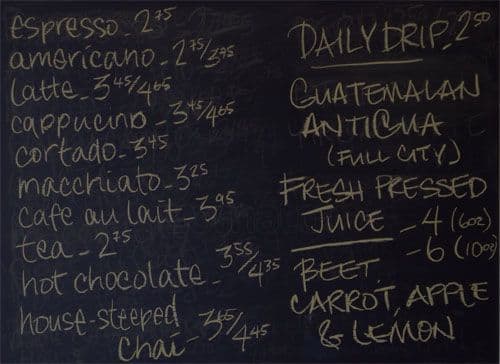 espresso - 2.75
americano - 2.75/3.75
latte - 3.45/4.65
cappucino - 3.45/4.65
cortado - 3.45
macchiato - 3.25
cafe au lait - 3.95
tea - 2.75
hot chocolate - 3.55/4.35
house-steeped
chai - 3.45/4.45
DAILY DRIP - 2.50
GUATEMALAN
ANTIGUA
(FULL CITY)
FRESH PRESSED
JUICE - 4 (6oz)
- 6 (10oz)
BEET,
CARROT, APPLE
& LEMON